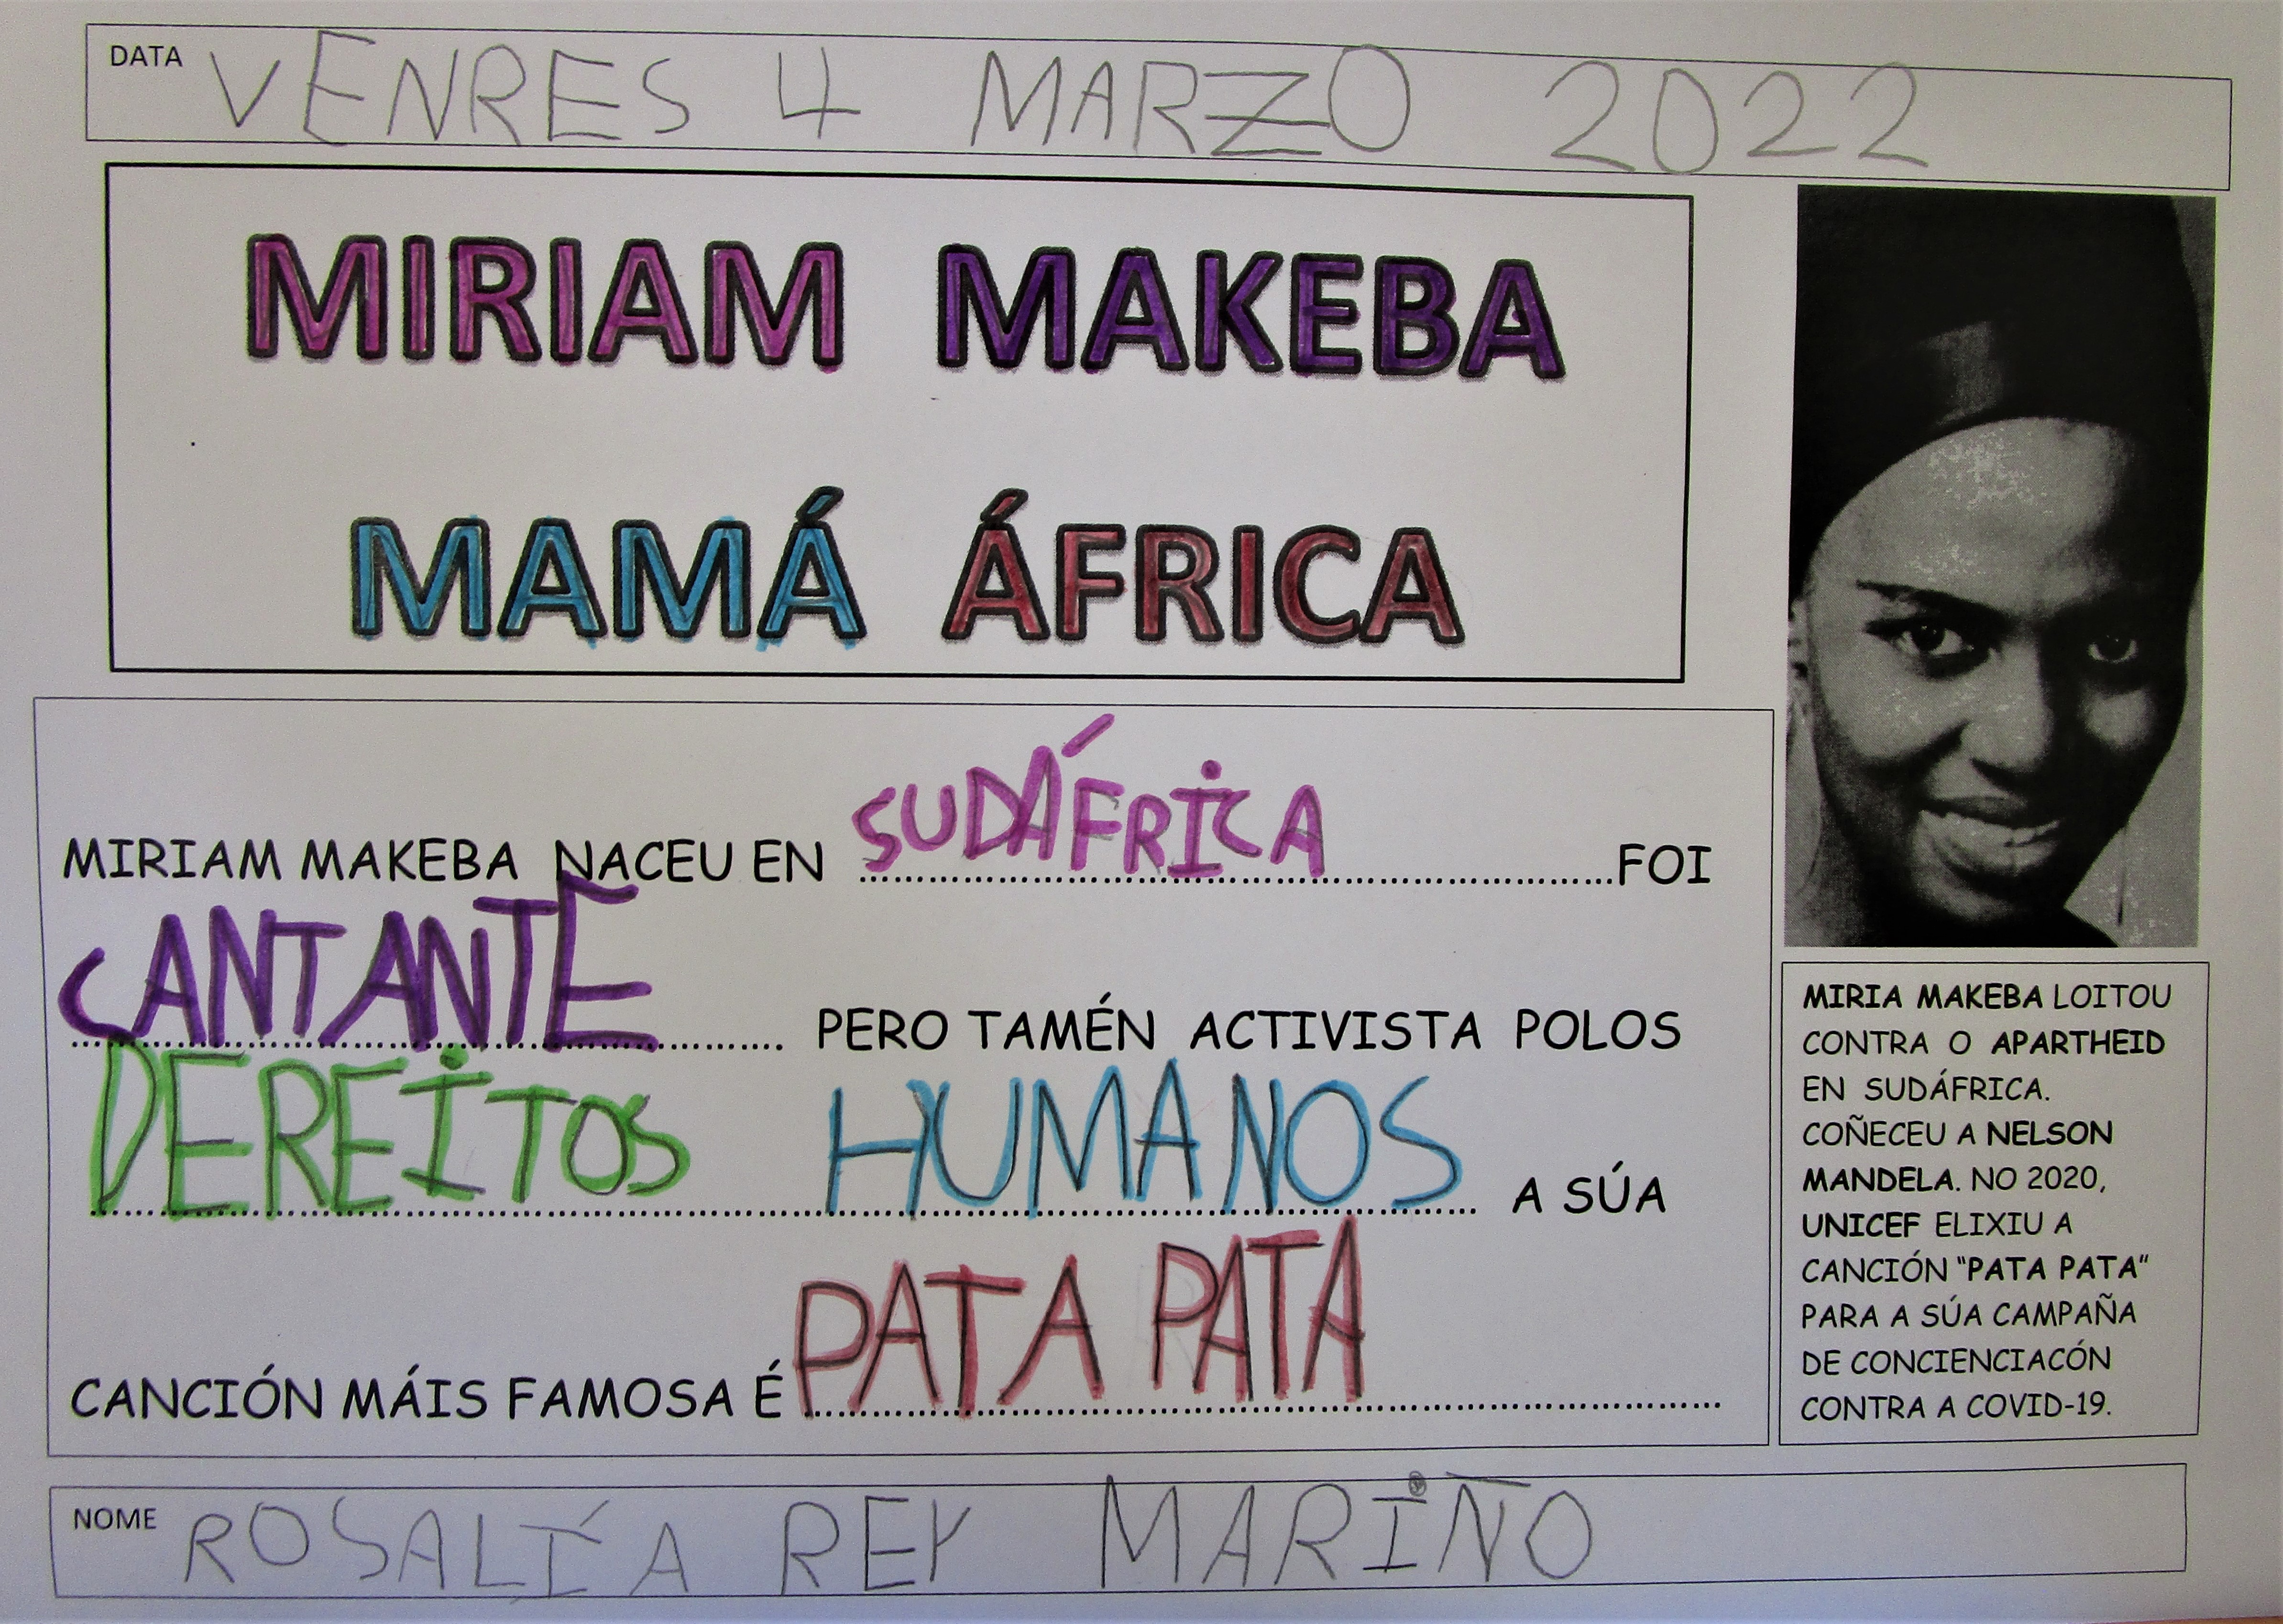 DATA VENRES 4 MARZO 2022
MIRIAM MAKEBA
MAMÁ ÁFRICA
MIRIAM MAKEBA NACEU EN SUDÁFRICA FOI
CANTANTE PERO TAMÉN ACTIVISTA POLOS
DEREITOS HUMANOS A SÚA
CANCIÓN MÁIS FAMOSA É PATA PATA
MIRIA MAKEBA LOITOU
CONTRA O APARTHEID
EN SUDÁFRICA.
COÑECEU A NELSON
MANDELA. NO 2020,
UNICEF ELIXIU A
CANCIÓN “PATA PATA”
PARA A SÚA CAMPAÑA
DE CONCIENCIACÓN
CONTRA A COVID-19.
NOME ROSALÍA REY MARIÑO